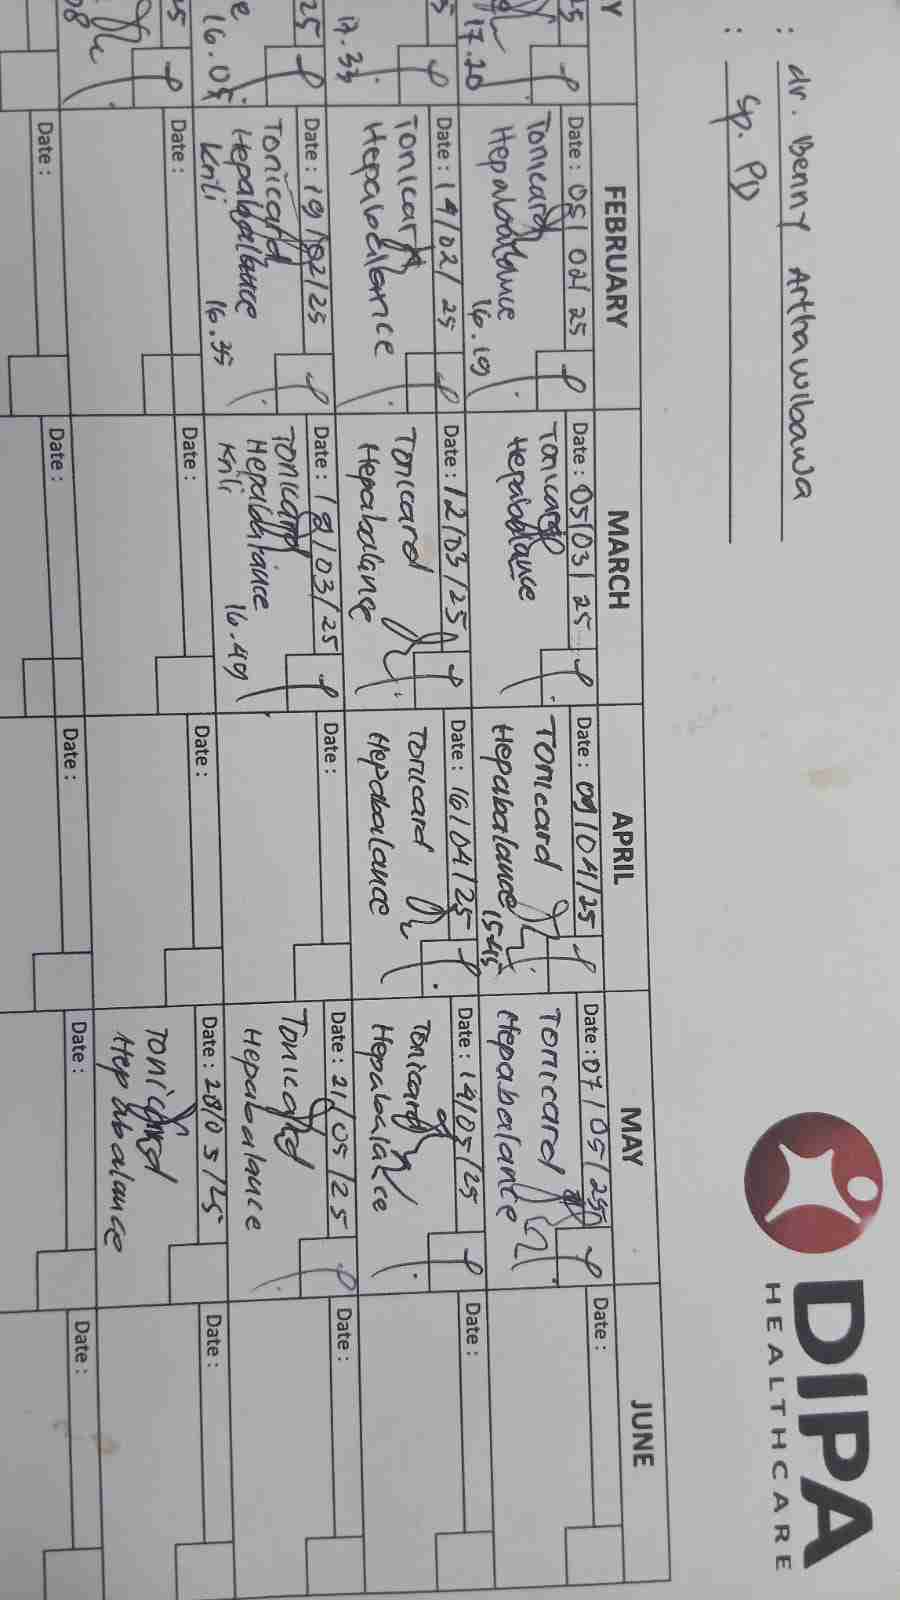 : dr. Benny Arthawibawa
: Sp. PD
DIPA
HEALTHCARE
Y
FEBRUARY
MARCH
APRIL
MAY
JUNE
25
17.20
Date : 05/02/25
Tonicard
Hepabalance
16.19
Date : 05/03/25
Tonicard
Hepabalance
Date : 09/04/25
Tonicard
Hepabalance
15.45
Date : 07/05/25
Tonicard
Hepabalance
Date :
5
17.33
Date : 14/02/25
Tonicard
Hepabalance
Date : 12/03/25
Tonicard
Hepabalance
Date : 16/04/25
Tonicard
Hepabalance
Date : 14/05/25
Tonicard
Hepabalance
Date :
25
e
16.05
Date : 19/02/25
Tonicard
Hepabalance
Knli
16.35
Date : 19/03/25
Tonicard
Hepabalance
Knli
16.49
Date :
Date : 21/05/25
Tonicard
Hepabalance
Date :
25
08
Date :
Date :
Date :
Date : 28/05/25
Tonicard
Hepabalance
Date :
Date :
Date :
Date :
Date :
Date :